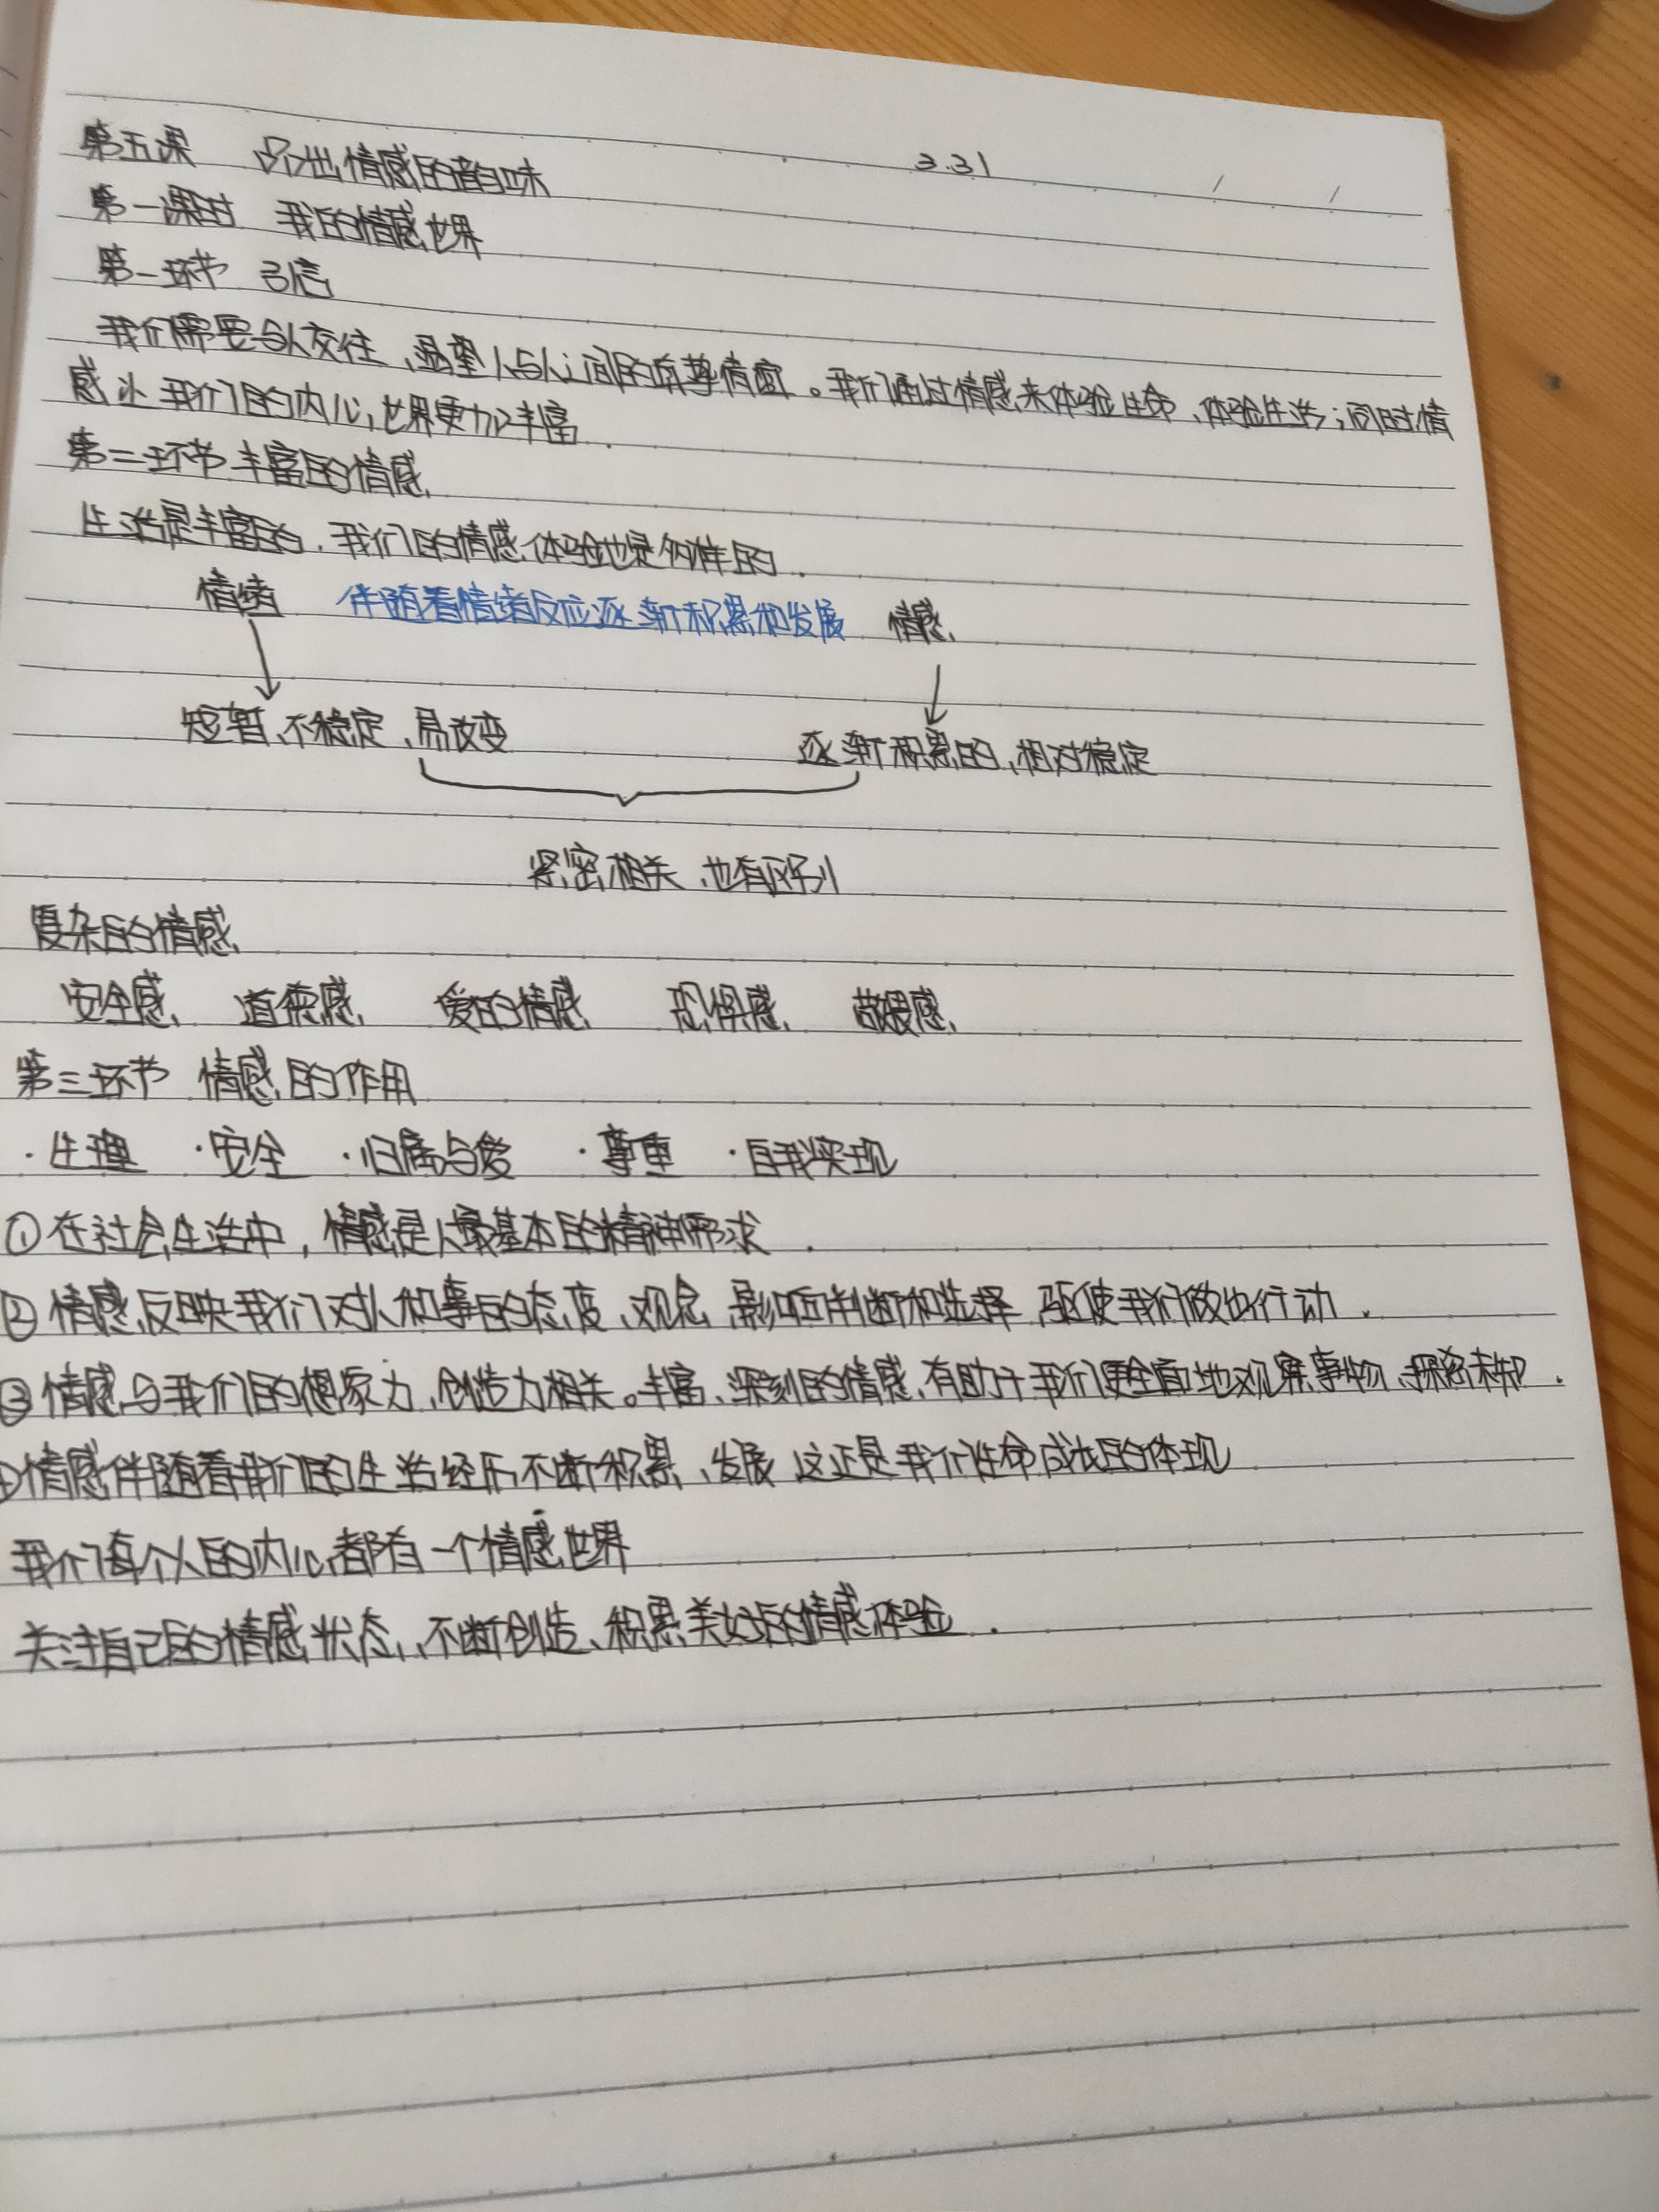 第五课 品出情感的韵味 3.31
第一课时 我的情感世界
第一环节 引言
我们需要与人交往、渴望人与人之间的真挚情谊。我们通过情感来体验生命、体验生活;同时,情
感让我们的内心世界更加丰富.
第二环节 丰富的情感
生活是丰富的,我们的情感体验也是多样的.
情绪 伴随着情绪反应逐渐积累和发展 情感
短暂、不稳定、易改变 逐渐积累的、相对稳定
紧密相关、也有区别
复杂的情感
安全感 道德感 爱的情感 恐惧感 敬畏感
第三环节 情感的作用
·生理 ·安全 ·归属与爱 ·尊重 ·自我实现
①在社会生活中,情感是人最基本的精神需求.
②情感反映我们对人和事的态度、观念,影响判断和选择,驱使我们做出行动.
③情感与我们的想象力、创造力相关。丰富、深刻的情感有助于我们更全面地观察事物、探密未知.
④情感伴随着我们的生活经历不断积累、发展,这正是我们生命成长的体现
我们每个人的内心都有一个情感世界
关注自己的情感状态,不断创造、积累美好的情感体验.